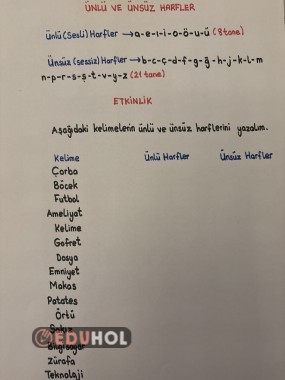 ÜNLÜ VE ÜNSÜZ HARFLER
Ünlü (Sesli) Harfler → a-e-ı-i-o-ö-u-ü (8 tane)
Ünsüz (sessiz) Harfler → b-c-ç-d-f-g-ğ-h-j-k-l-m
n-p-r-s-ş-t-v-y-z (21 tane)
ETKİNLİK
Aşağıdaki kelimelerin ünlü ve ünsüz harflerini yazalım.
Kelime Ünlü Harfler Ünsüz Harfler
Çorba
Böcek
Futbol
Ameliyat
Kelime
Gofret
Dosya
Emniyet
Makas
Patates
Örtü
Sakız
Bilgisayar
Zürafa
Teknoloji
EDUHOL